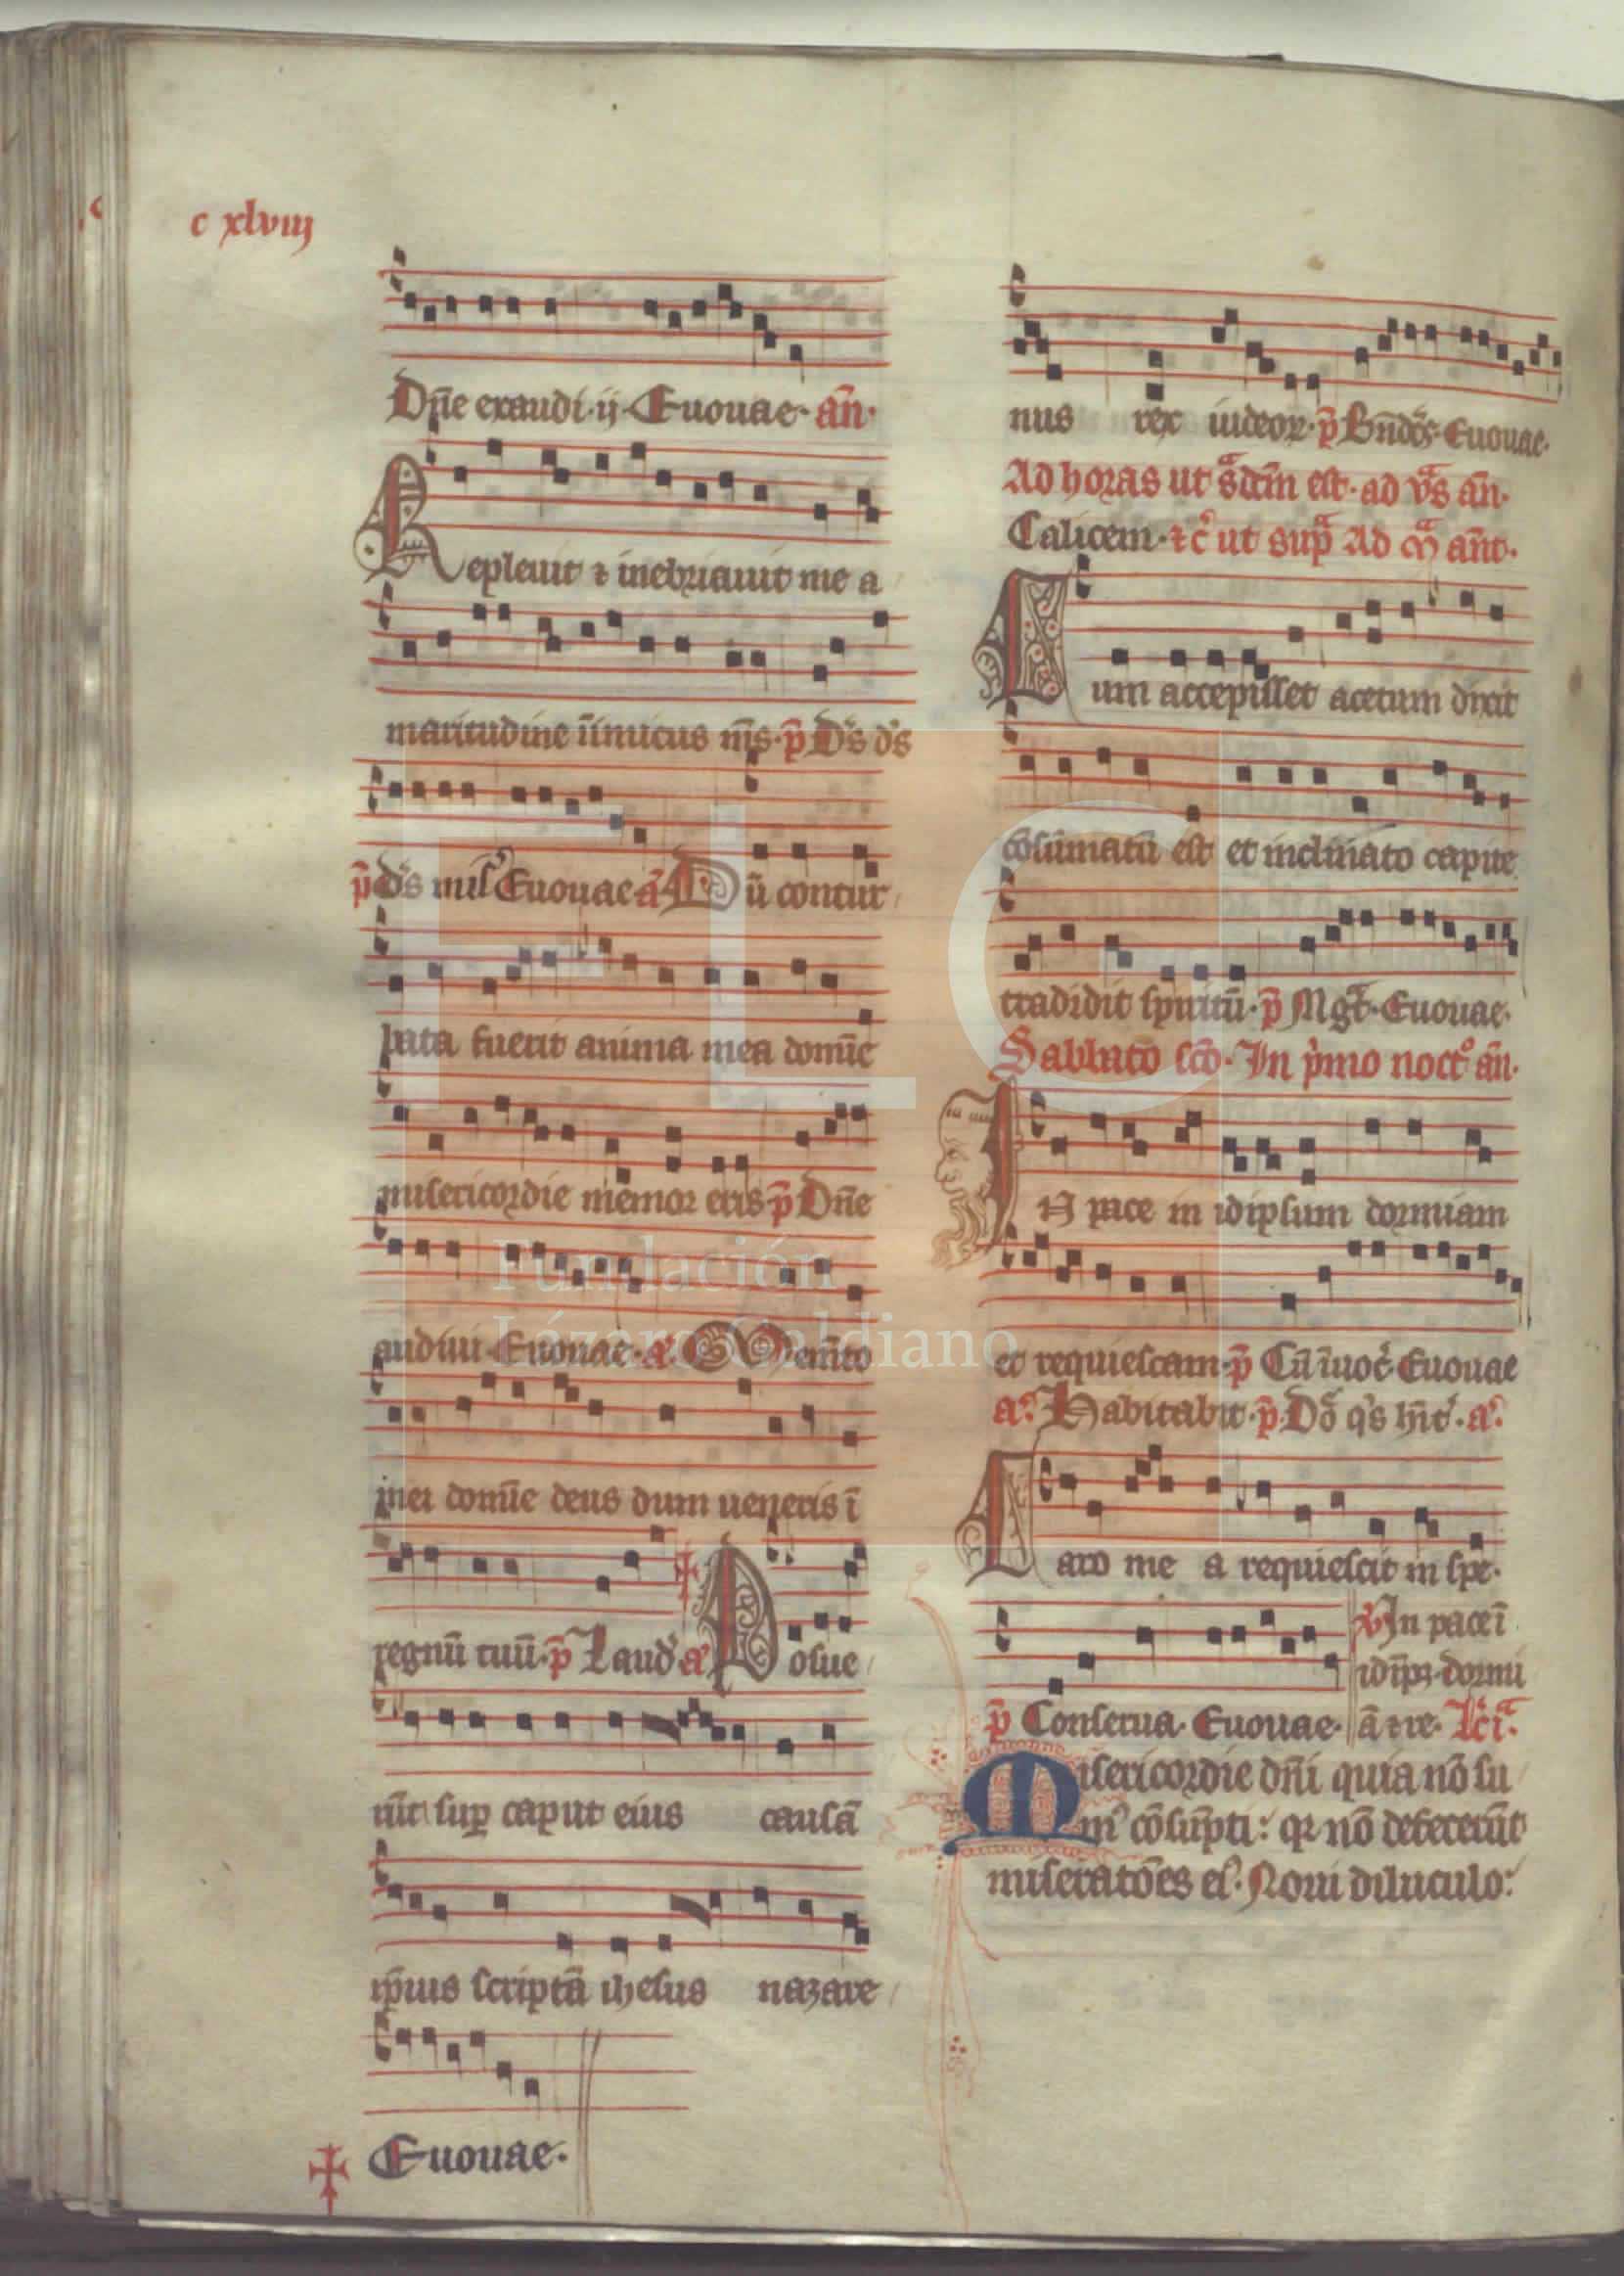 c xlviij
Dn̄e exaudi · ij · Euouae · an̄ ·
Repleuit ⁊ inebriauit me a
maritudine īimicus m̄s · p̄ D̄s d̄s
p̄ d̄s mis̄ Euouae a᷒ Dū contur
bata fuerit anima mea domīe
misericordie memor eris p̄ Dn̄e
audiui Euouae · a᷒ Mem̄to
mei domīe deus dum ueneris ī
regnū tuū · p̄ Laud᷒ a᷒ Posue
rūt sup̱ caput eius causā
ip̄ius scriptā ihesus nazare
Euouae ·
nus rex iudeoꝝ · p̄ Bn̄dc̄s · Euouae ·
Ad horas ut sͣ dcm̄ est · ad vͣs an̄ ·
Calicem · ⁊c̄ ut supͣ Ad mͣ ant̄ ·
Cum accepisset acetum dixit
cōsūmatū est et inclinato capite
tradidit spiritū · p̄ Mgͣt · Euouae ·
Sabbato sc̄o · In p̍mo noct᷒ an̄ ·
In pace in idipsum dormiam
et requiescam · p̄ Cū īuoc̄ · Euouae
a᷒ Habitabit · p̄ Dō q̍s hīt · a᷒
Caro me a requiescit in spe ·
℣ In pace ī
idīp̄ꝫ dormi
p̄ Conserua · Euouae · ā ⁊ re · Lc̄iͣ ·
Misericordie dn̄i quia nō su
m᷒ cōsūpti : qꝛ nō defecerūt
miseratōes ei᷒ · Noui diluculo :
FLG
Fundación
Lázaro Galdiano